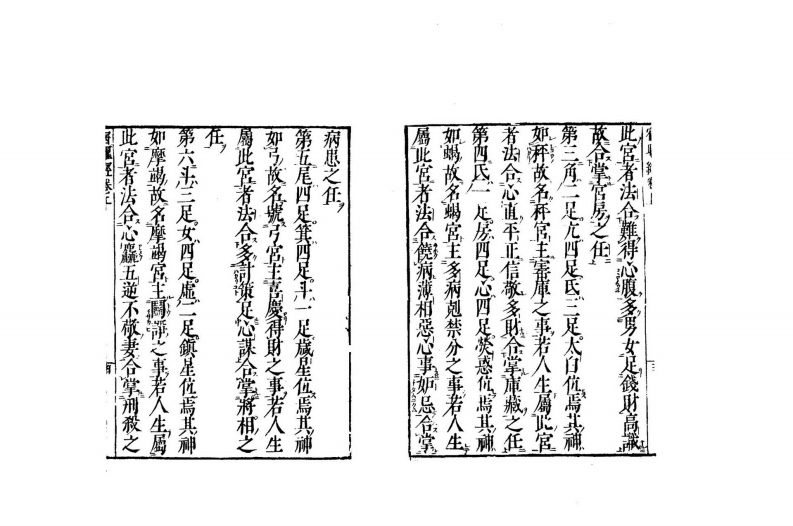 此宮者法合難得心腹多男女足錢財高識
故合掌宮房之任
第三角二足亢四足氐三足太白位焉其神
如秤故名秤宮主寶庫之事若人生屬此宮
者法合心直平正信敬多財合掌庫藏之任
第四氐一足房四足心四足熒惑位焉其神
如蝎故名蝎宮主多病剋禁分之事若人生
屬此宮者法合饒病薄相惡心事妒忌合掌
病患之任
第五尾四足箕四足斗一足歲星位焉其神
如弓故名號弓宮主喜慶得財之事若人生
屬此宮者法合多計策足心謀合掌將相之
任
第六斗三足女四足虛二足鎮星位焉其神
如摩竭故名摩竭宮主鬪諍之事若人生屬
此宮者法合心麤五逆不敬妻合掌刑殺之